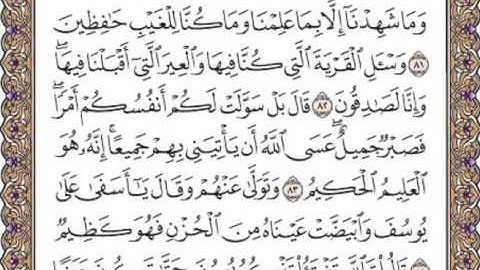 وَمَا شَهِدْنَآ إِلَّا بِمَا عَلِمْنَا وَمَا كُنَّا لِلْغَيْبِ حَٰفِظِينَ
٨١ وَسْـَٔلِ ٱلْقَرْيَةَ ٱلَّتِى كُنَّا فِيهَا وَٱلْعِيرَ ٱلَّتِىٓ أَقْبَلْنَا فِيهَا ۖ
وَإِنَّا لَصَٰدِقُونَ ٨٢ قَالَ بَلْ سَوَّلَتْ لَكُمْ أَنفُسُكُمْ أَمْرًا ۖ
فَصَبْرٌ جَمِيلٌ ۖ عَسَى ٱللَّهُ أَن يَأْتِيَنِى بِهِمْ جَمِيعًا ۚ إِنَّهُۥ هُوَ
ٱلْعَلِيمُ ٱلْحَكِيمُ ٨٣ وَتَوَلَّىٰ عَنْهُمْ وَقَالَ يَٰٓأَسَفَىٰ عَلَىٰ
يُوسُفَ وَٱبْيَضَّتْ عَيْنَاهُ مِنَ ٱلْحُزْنِ فَهُوَ كَظِيمٌ